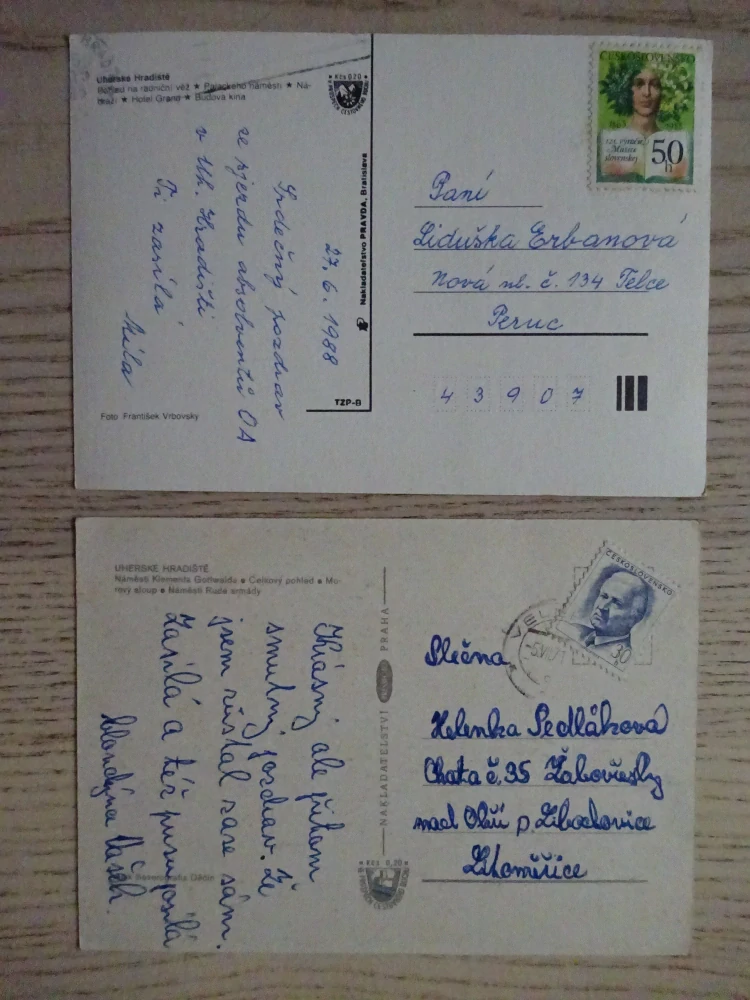 Uherské Hradiště
Pohled na radniční věž ★ Palackého náměstí ★ Ná-
draží ★ Hotel Grand ★ Budova kina
Kčs 0,20
ČESKOSLOVENSKO
125. výročí
Matice
slovenskej
50
h
27. 6. 1988
Srdečný pozdrav
ze sjezdu absolventů OA
v Uh. Hradišti
Ti zasílá
Míla
Nakladateľstvo PRAVDA, Bratislava
TZP-B
Foto František Vrbovský
Paní
Liduška Erbanová
Nová ul. č. 134 Telce
Peruc
43907
UHERSKÉ HRADIŠTĚ
Náměstí Klementa Gottwalda ■ Celkový pohled ■ Mo-
rový sloup ■ Náměstí Rudé armády
ČESKOSLOVENSKO
30
Krásný ale přitom
smutný pozdrav. Že
jsem zůstal zase sám.
Zasílá a též pusu posílá
blondýna Vašek.
NAKLADATELSTVÍ PRAHA
Kčs 0,20
Slečna
Helenka Sedláková
Chata č. 35 Žabovřesky
nad Ohří p. Libochovice
Litoměřice